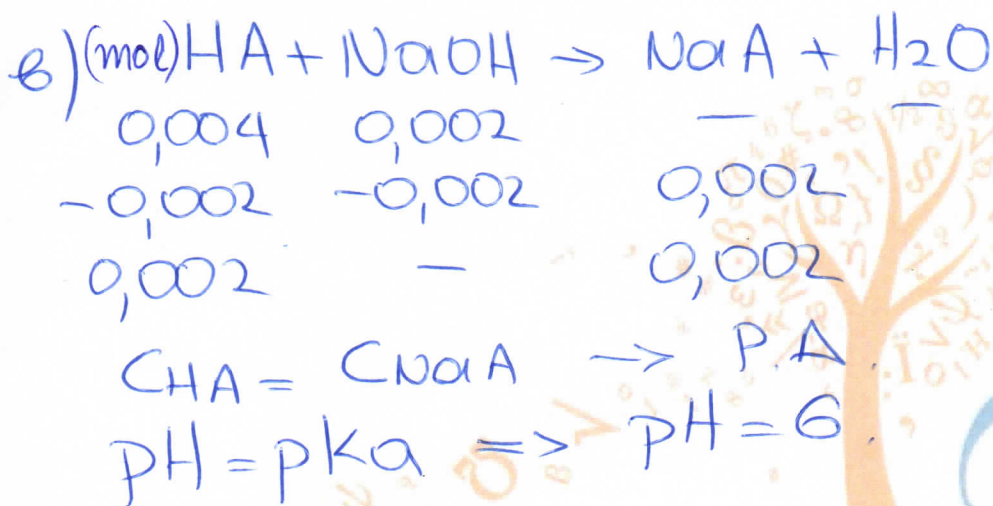 β) (mol) HA + NaOH → NaA + H2O
0,004 0,002 — —
-0,002 -0,002 0,002
0,002 — 0,002
CHA = CNaA → P.A.
pH = pKa => pH = 6.